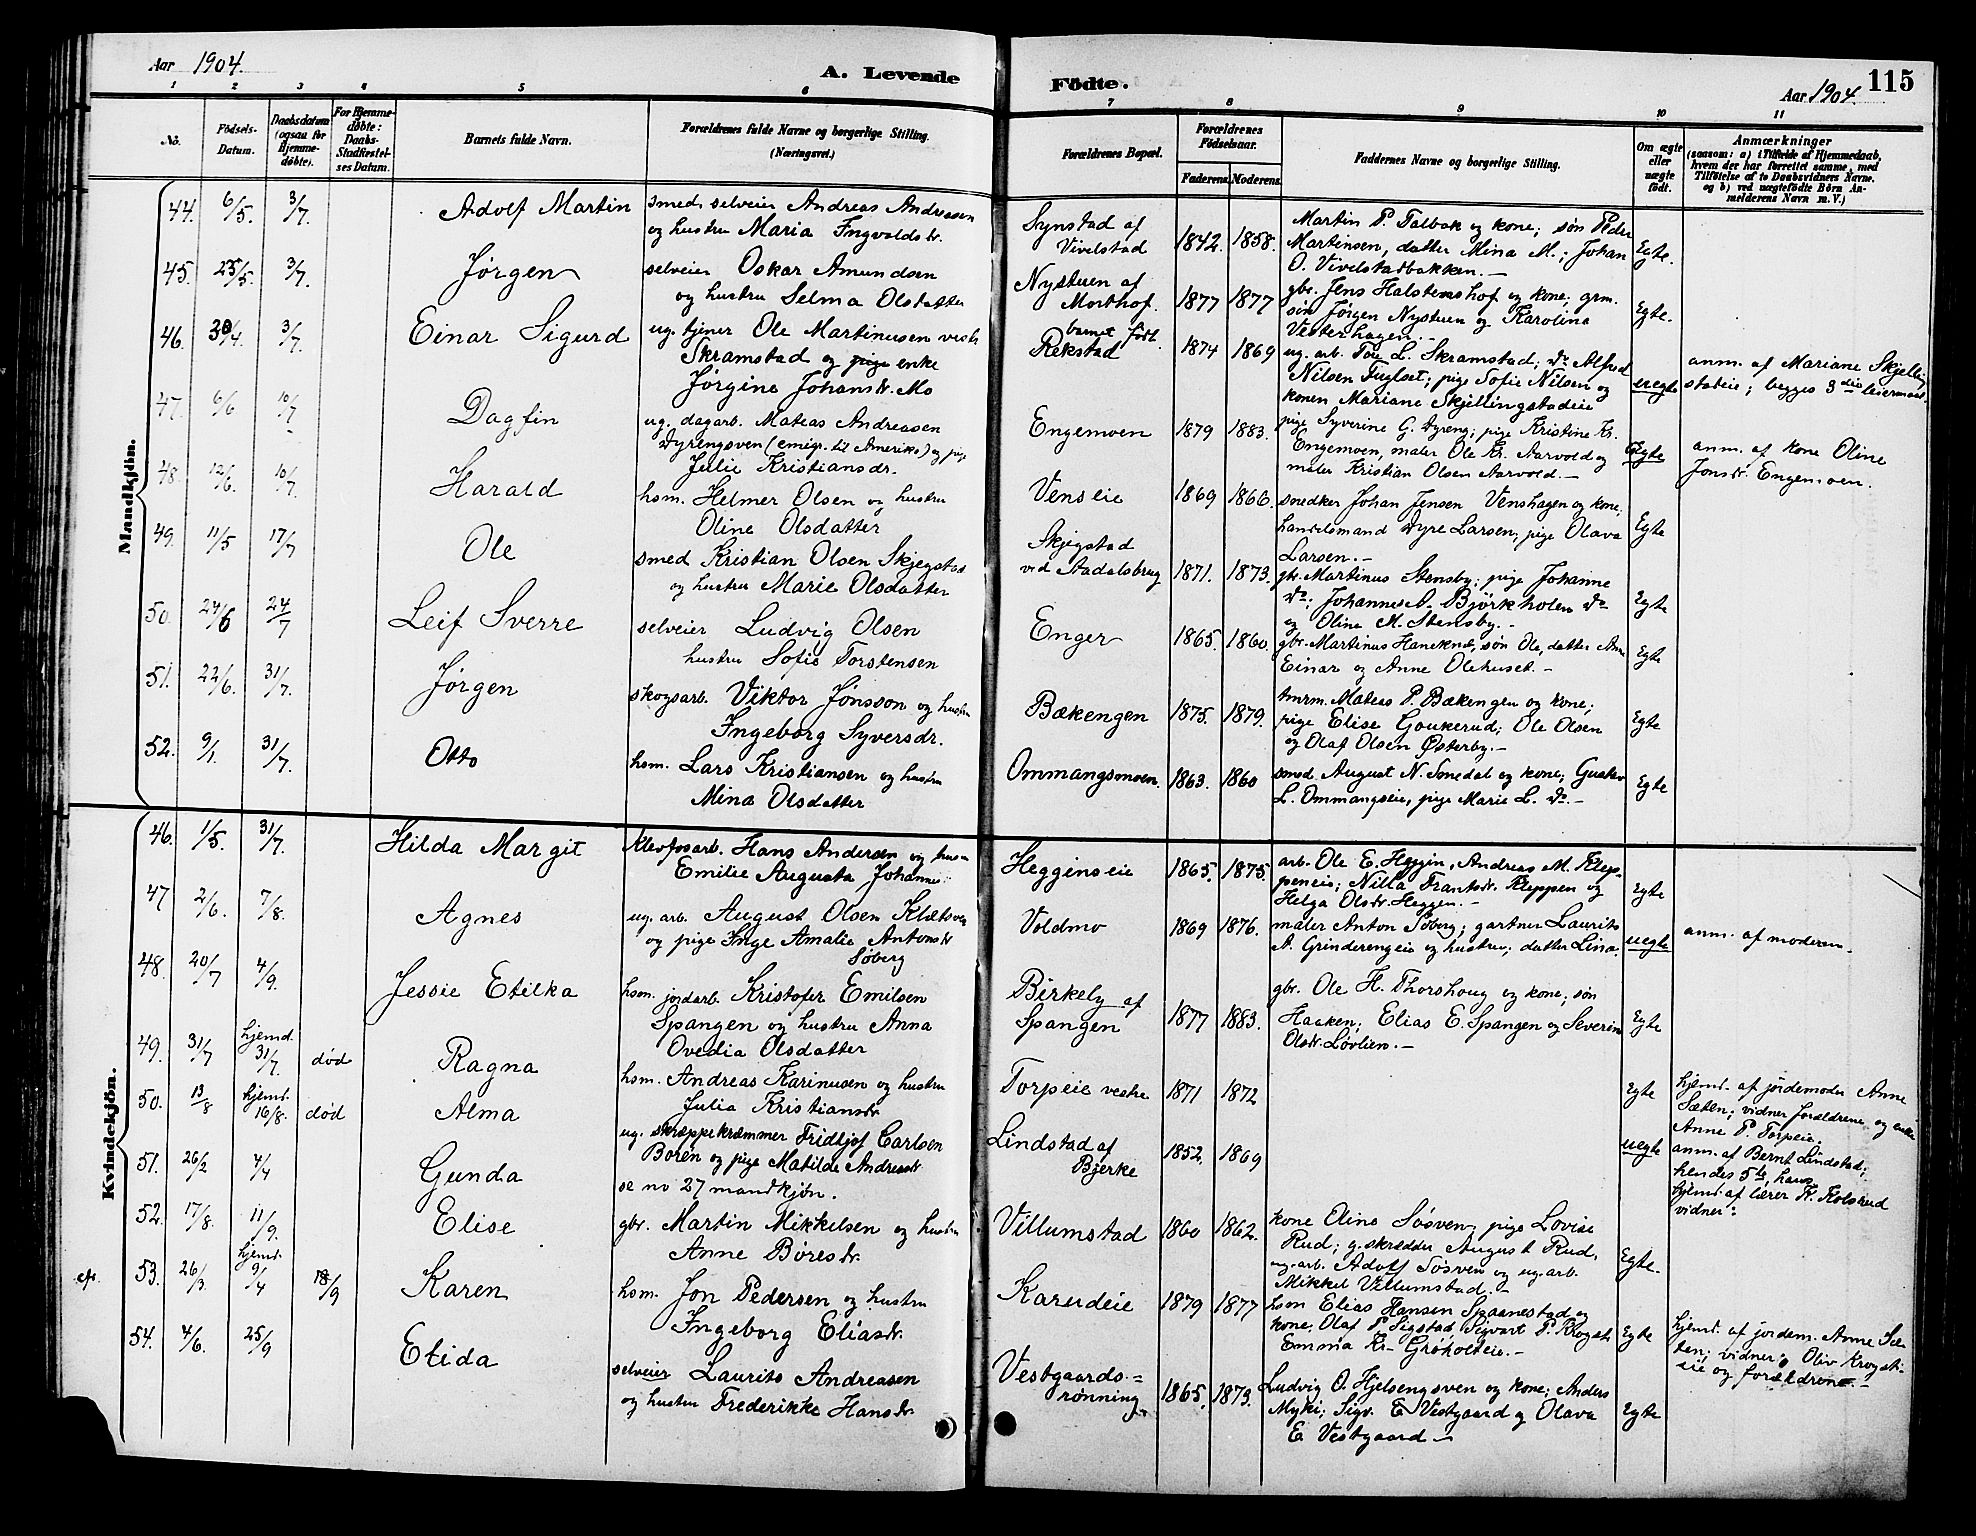 Aar 1904.
A. Levende
Födte.
Aar 1904.
115
1 2 3 4 5 6 7 8 9 10 11
No.
Födsels-Datum.
Daabsdatum (ogsaa for Hjemmedøbte).
For Hjemmedøbte: Daabs-Stadfæstelses Datum.
Barnets fulde Navn.
Forældrenes fulde Navne og borgerlige Stilling. (Næringsvei.)
Forældrenes Bopæl.
Forældrenes Födselsaar.
Faderens. Moderens.
Faddernes Navne og borgerlige Stilling.
Om ægte eller uægte födt.
Anmærkninger
(saasom: a) i Tilfælde af Hjemmedaab, hvem der har forrettet samme, med Tilföielse af to Daabsvidners Navne. og b) ved uægtefödte Börn Anmelderens Navn m. V.)
Mandkjön.
44. 6/5. 3/7. Adolf Martin
smed, selveier Andreas Andreasen
og hustru Maria Ingvoldsdr.
Synstad af
Vivelstad
1842. 1858.
Martin P. Talbak og kone; søn Peder
Martensen, datter Mina M.; Johan
O. Vivelstadbakken. –
Egte.
45. 25/5 3/7. Jørgen
selveier Oskar Amundsen
og hustru Selma Olsdatter
Nystuen af
Morthof.
1877 1877
gbr. Jens Halstenshof og kone; grm.
søn Jørgen Nystuen og Karolina
Vesterhagen. –
Egte.
46. 30/4. 3/7. Einar Sigurd
ug. tjener Ole Martinusen
Skramstad og pige enke
Jørgine Johansdr. Mo
barnet født
Rekstad
1874 1869
ug. arb. L. Skramstad; do Alfred
Nilsen Fuglset; pige Sofie Nilsen og
konen Mariane Skjellingstadeie
uegte
anm. af Mariane Skjelling
stadeie; begges 3die leiermaal.
47. 6/6 10/7 Dagfin
ug. dagarb. Mateas Andreasen
Dyrengsven (emigr. til Amerika) og pige
Julie Kristiansdr.
Engemoen
1879 1883.
pige Syverine G. Dyreng; pige Kristine Kr.
Engemoen, maler Ole Kr. Aarvold og
maler Kristian Olsen Aarvold. –
anm. af kone Oline
Jonsdr. Engemoen.
48. 12/6. 10/7. Harald
hsm. Helmer Olsen og hustru
Oline Olsdatter
Venseie
1869 1866.
snedker Johan Jensen Venshagen og kone;
handelsmand Dyre Larsen, pige Olava
Larsen. –
Egte
49. 11/5 17/7 Ole
smed Kristian Olsen Skjegstad
og hustru Marie Olsdatter
Skjegstad
ved Aadalsbrug
1871. 1873.
gbr. Martinus Stensby; pige Johanne
do; Johannes A. Björkholen do
og Oline M. Stensby. –
Egte
50. 24/6 24/7 Leif Sverre
selveier Ludvig Olsen
hustru Sofie Torstensen
Enger
1865. 1860.
gbr. Martinus Haneknæ, søn Ole, datter Anne
Einar og Anne Olehuset. –
Egte
51. 22/6. 31/7. Jørgen
skogsarb. Viktor Jönsson og hustru
Ingeborg Syversdr.
Bækengen
1875. 1879.
tmrm. Mateas P. Bækengen og kone;
pige Elise Goukerud; Ole Olsen
og Olaf Olsen Østerby. –
Egte
52. 9/1. 31/7. Otto
hsm. Lars Kristiansen og hustru
Mina Olsdatter
Ommangsmoen.
1863. 1860
smed August N. Smedal og kone; Gustav
L. Ommangseie, pige Marie L. do. –
Egte
Kvindekjön.
46. 1/5. 31/7. Hilda Margit
Klevfosarb. Hans Andersen og hustru
Emilie Augusta Johannes
Hegginseie
1865. 1875.
arb. Ole E. Heggin, Andreas M. Klep-
peneie; Nilla Frantsdr. Kleppen og
Helga Olsdr. Heggen. –
Egte
47 2/6. 7/8. Agnes
ug. arb. August Olsen Klætsven
og pige Inge Amalie Antonsdr
Søberg
Voldmo
1869 1876.
maler Anton Søberg; gartner Laurits
A. Grinderengeie og hustru; datter Lina.
uegte
anm. af moderen. –
48. 20/7 4/9. Jessie Etilka
hsm. jordarb. Kristofer Emilsen
Spangen og hustru Anna
Ovedia Olsdatter
Birkely af
Spangen
1877 1883.
gbr. Ole H. Thorshoug og kone; søn
Haaken; Elias E. Spangen og Severin
Olsdr. Løvlien. –
Egte
49. 31/7 hjemd. 31/7. død Ragna
hsm. Andreas Karinusen og hustru
Julia Kristiansdr.
Torpeie vestre
1871 1872
Egte
hjemd. af jordemoder Anne
Sæten; vidner forældrene og enke
Anne P. Torpeie.
50. 13/8 hjemd. 16/8. død Alma
ug. skræppekræmmer Fridtjof Carlsen
Boren og pige Matilde Andreasdr
Lindstad af
Bjerke
1852. 1869
uegte
anm. af Bernt Lindstad;
hendes 5te, hans
hjemd. af lærer K. Kolsrud
vidner:
51. 26/2 4/4 Gunda
se no 27 mandkjøn.
52. 17/8. 11/9. Elise
gbr. Martin Mikkelsen og hustru
Anne Böresdr.
Villumstad
1860 1862.
kone Oline Søsven, pige Lovise
Rud; g. skrædder August Rud,
ug. arb. Adolf Søsven og ug. arb.
Mikkel Villumstad. –
Egte.
53. 26/3 hjemd. 9/4 18/9 Karen
hsm. Jon Pedersen og hustru
Ingeborg Eliasdr.
Karudeie
1879 1877
hsm Elias Hansen Spaanestad og
kone, Olaf P. Sigstad, Sigvart P. Krogst.
Emma Kr. Grøholteie. –
Egte
hjemd. af jordem. Anne Sæ-
ten; vidner: Oliv Krogst-
eie og forældrene. –
54. 4/6. 25/9 Elida
selveier Laurits Andreasen
og hustru Frederikke Hansdr.
Vestgaards=
rønningen
1865. 1873.
Ludvig O. Hjelsengsven og kone; Anders
Myki; Sigv. E. Vestgaard og Olava
E. Vestgaard –
Egte